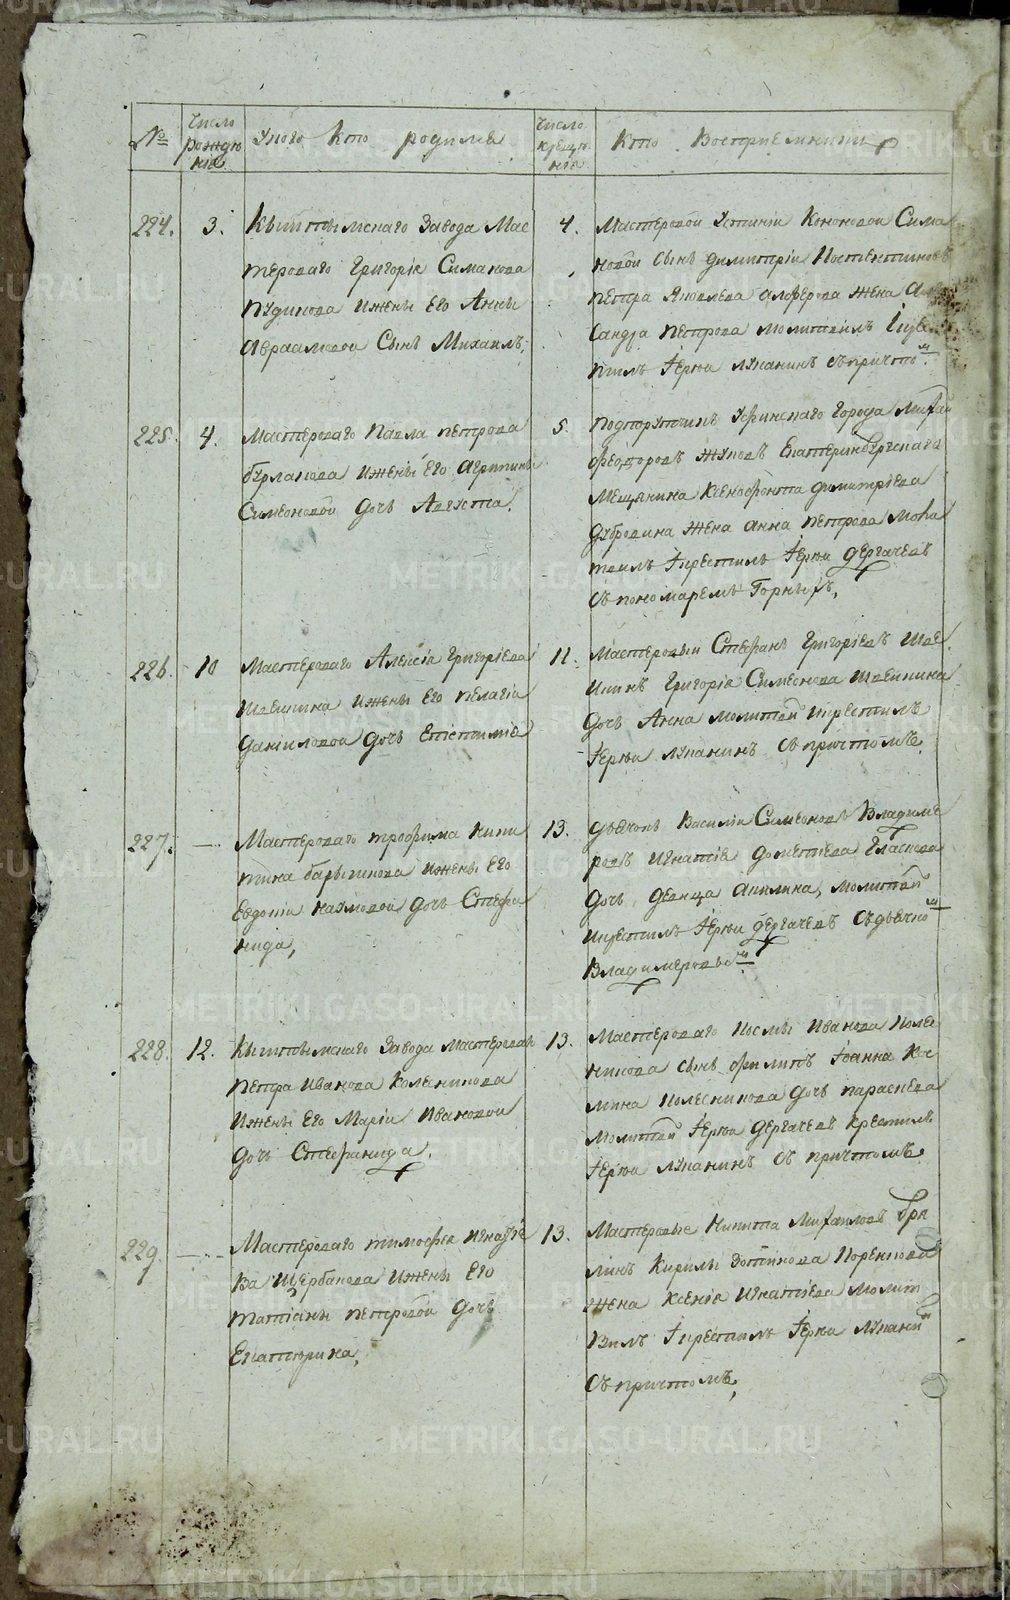 №
Число
рожде
нія
У кого Кто родился
Число
креще
нія
Кто Воспріемники
224.
3.
Кыштымскаго Завода Мас
тероваго Григорія Симанова
Пудикова и жены Его Анны
Авраамовой Сынъ Михаилъ,
4.
Мастеровой Устиніи Кононовой Сима
новой сынъ Димитріи
Петра Яковлева Алферова жена
сандра Петрова молитвилъ
Іерей Лупанинъ съ причто
225.
4.
Мастероваго Павла Петрова
Бурлакова и жены Его Агрипины
Симеоновой дочь Августа.
5.
Подпорутчикъ Уфинскаго Города
Феодоровъ Жуковъ Екатеринбургскаго
Мещанина Ксенофонта Димитріева
Дубровина жена Анна Петрова Моли
твилъ Iкрестилъ Іерей Дергачевъ
съ пономаремъ Горныхъ,
226.
10
Мастероваго Алексіа Григоріева
Швейкина и жены Его Пелагіи
Даниловой дочь Епістимія
11.
Мастеровыи Стефанъ Григоріевъ Шве
Григорія Симеонова Швейкина
дочь Анна молитвой икрестилъ
Іереи Лупанинъ съ причтомъ
227.
Мастероваго Трофима Ники
тина Барышникова и жены Его
Евдокіи Наумовой дочь Стефа
нида,
13.
дьячокъ Василіи Симеоновъ Владиме
ровъ Игнатіа Дометіева Гласкова
дочь девица Акилина, молитвой
икрестилъ Іереи Дергачевъ съ дьячко
Владимеровы
228.
12.
Кыштымскаго Завода Мастероваго
Петра Иванова Колесникова
и жены Его Маріи Ивановой
дочь Стефанида.
13.
Мастероваго Космы Иванова Колес
никова сынъ Филипъ Іоанна Кос
мина Колесникова дочь Параскева
Молитвой Іереи Дергачевъ крестилъ
Іереи Лупанинъ съ причтомъ
229.
Мастероваго Тимофея Игнатіе
ва Щербакова и жены Его
Татіаны Петровой дочь
Екатерина,
13.
Мастеровые Никита Михаиловъ
Кирилы Зотикова
жена Ксенія Игнатіева Молит
вилъ Iкрестилъ Іереи Лупани
съ причтомъ,
METRIKI.GASO-URAL.RU